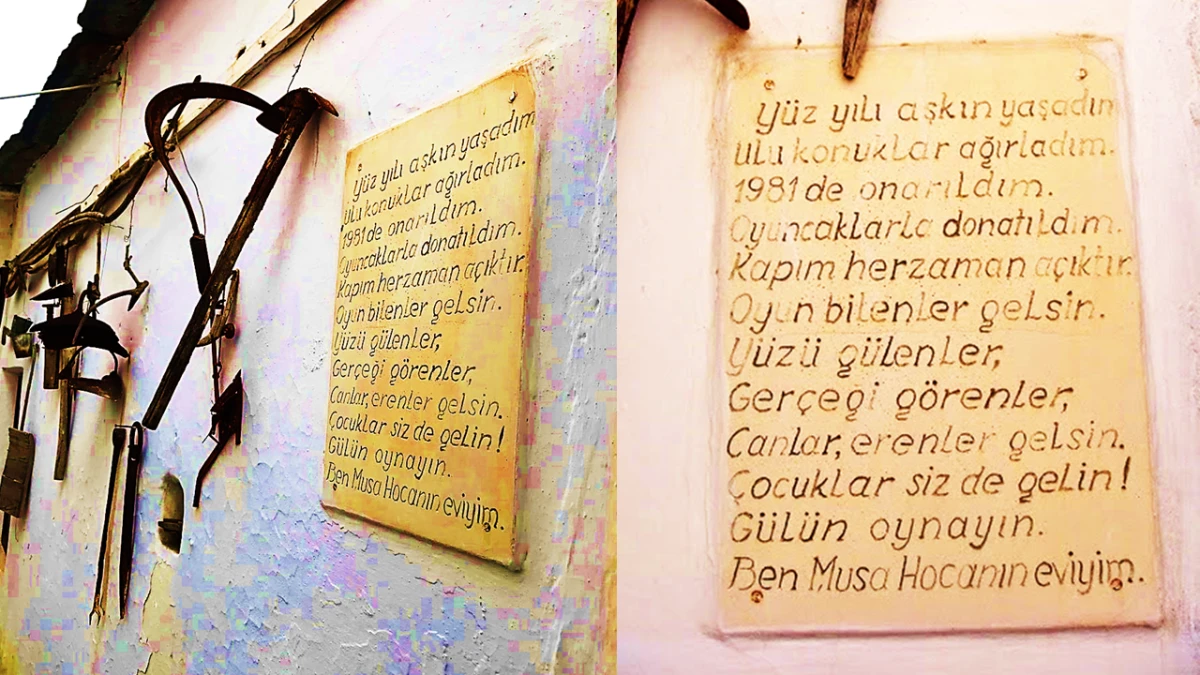 Yüz yılı aşkın yaşadım
ulu konuklar ağırladım.
1981 de onarıldım.
Oyuncaklarla donatıldım.
Kapım herzaman açıktır.
Oyun bilenler gelsin.
Yüzü gülenler,
Gerçeği görenler,
Canlar, erenler gelsin.
Çocuklar siz de gelin!
Gülün oynayın.
Ben Musa Hocanın eviyim.
Yüz yılı aşkın yaşadım
ulu konuklar ağırladım.
1981 de onarıldım.
Oyuncaklarla donatıldım.
Kapım herzaman açıktır.
Oyun bilenler gelsin.
Yüzü gülenler,
Gerçeği görenler,
Canlar, erenler gelsin.
Çocuklar siz de gelin!
Gülün oynayın.
Ben Musa Hocanın eviyim.